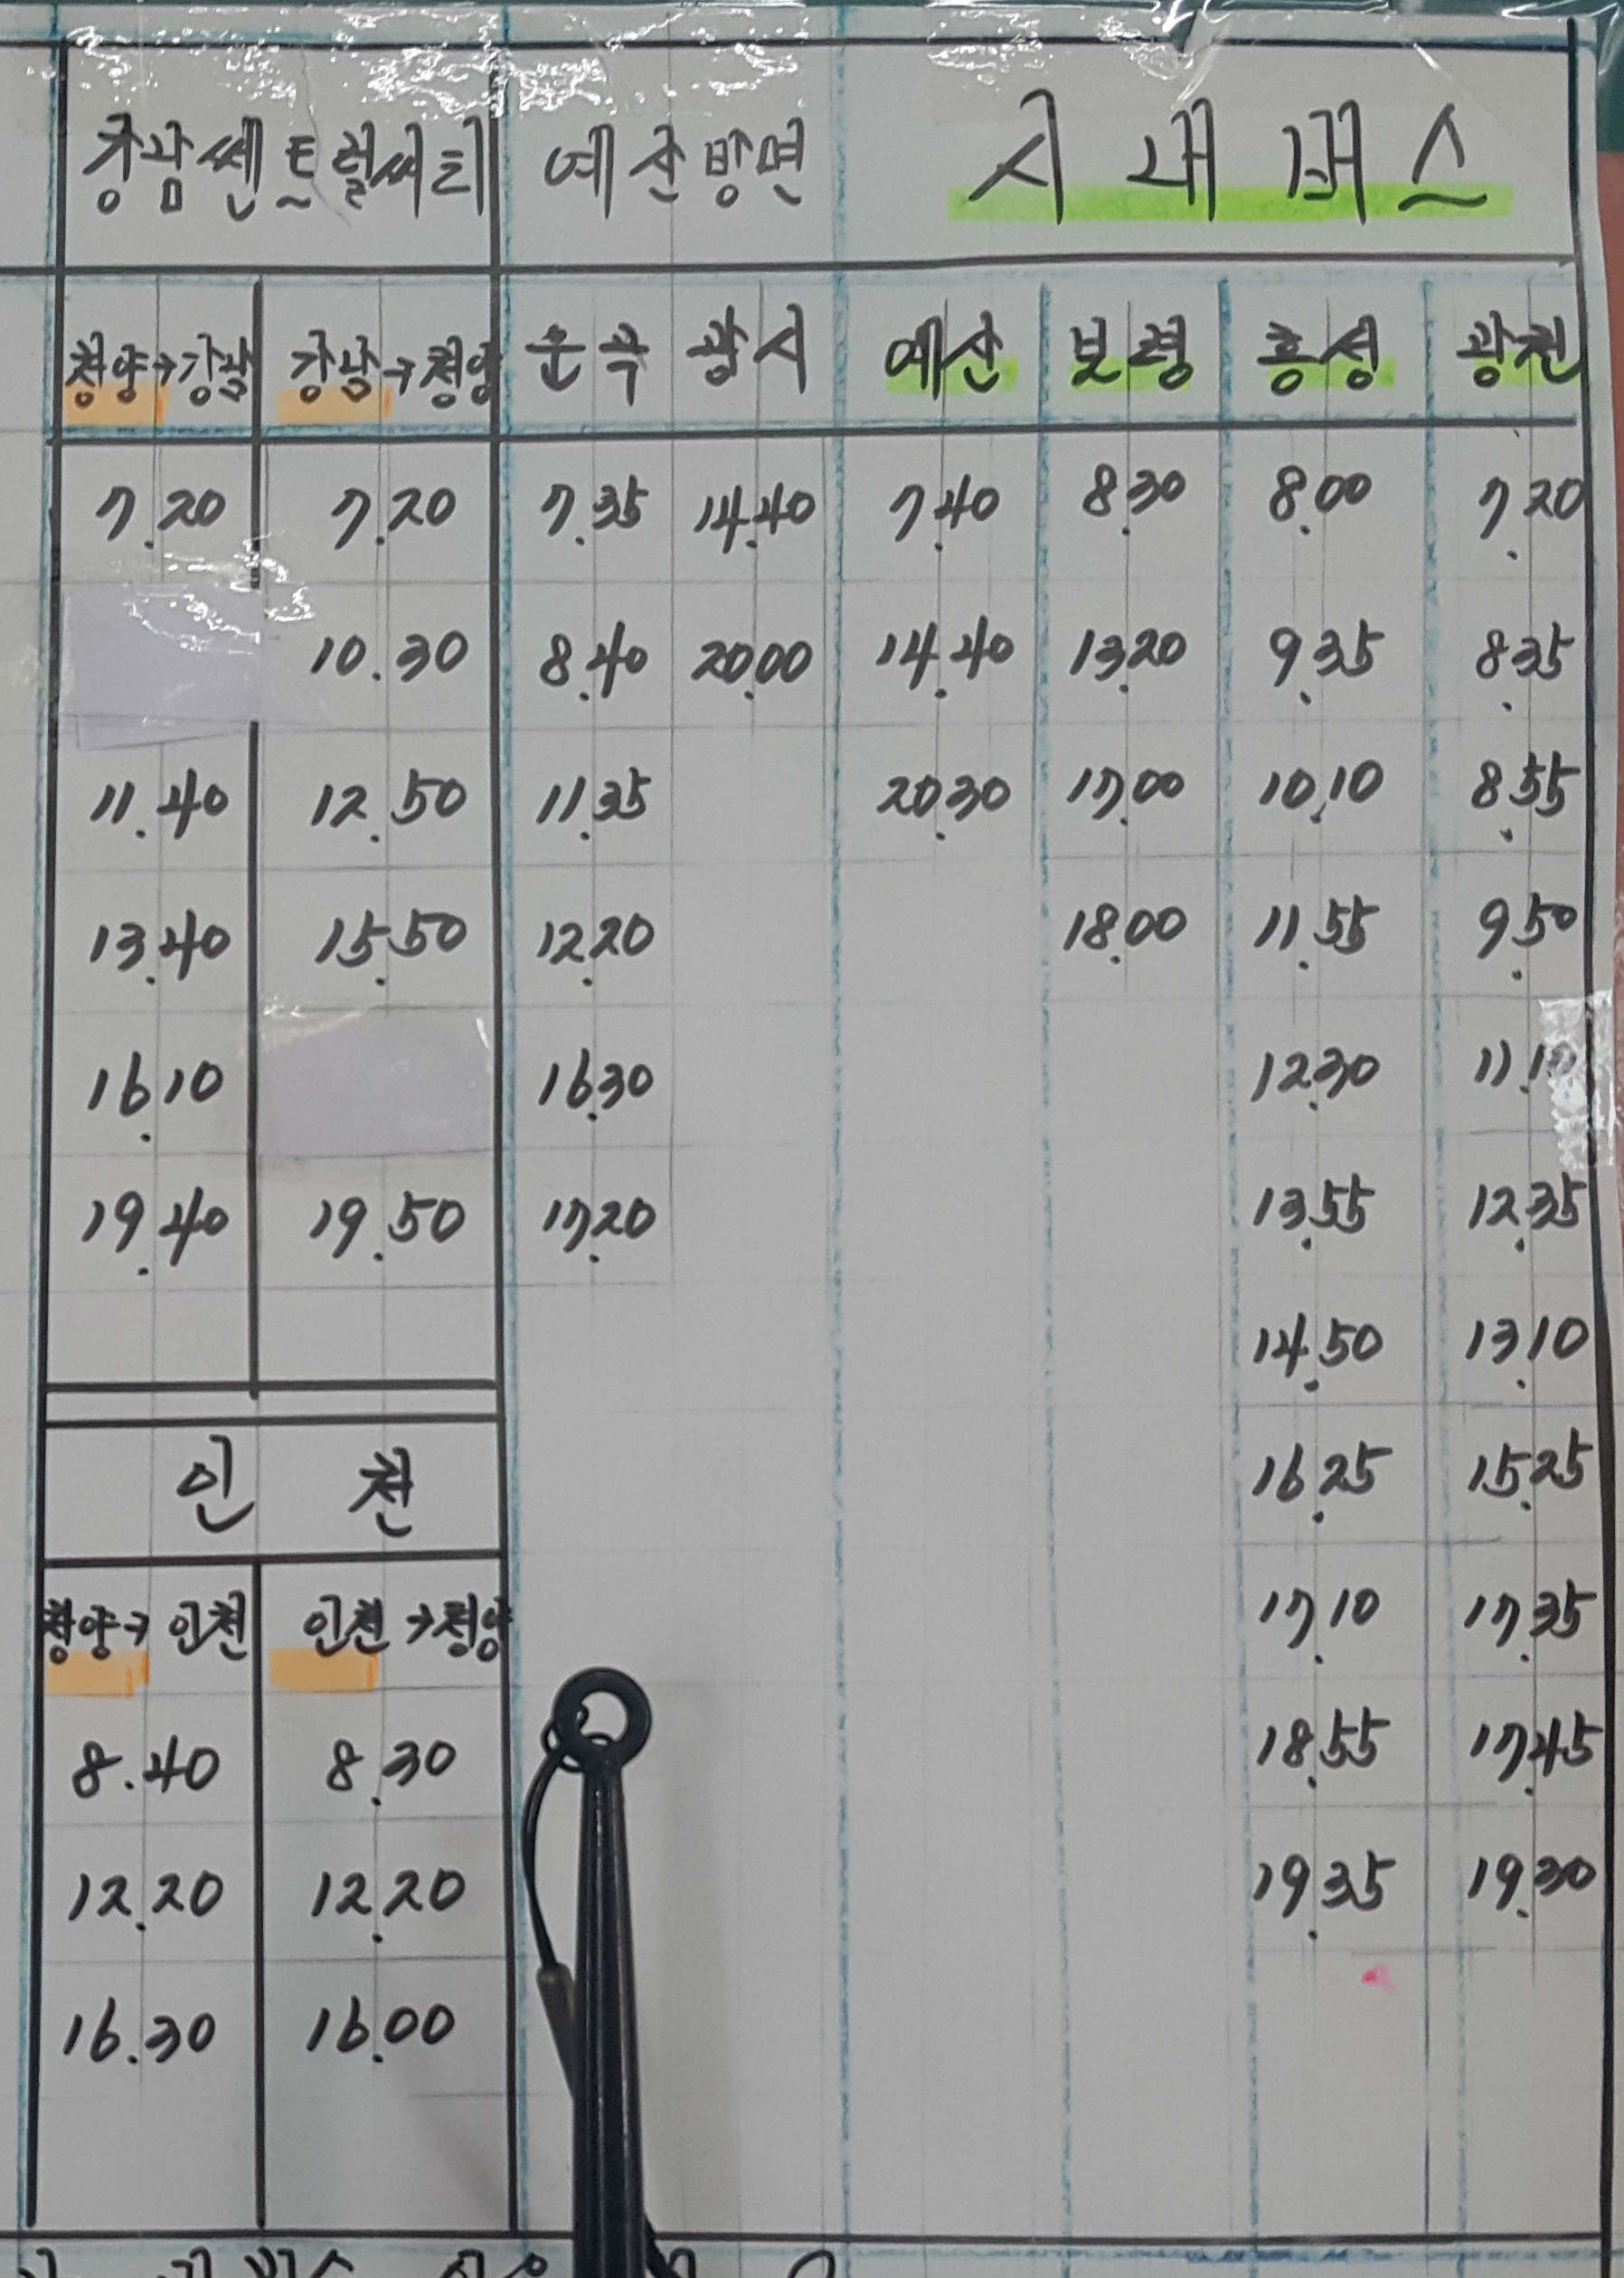 강남쎈트럴씨티 예산방면 시내버스
청양→강남 강남→청양 운곡 광시 예산 보령 홍성 광천
7.20 7.20 7.35 14.40 7.40 8.30 8.00 7.20
10.30 8.40 20.00 14.40 13.20 9.35 8.35
11.40 12.50 11.35 20.30 17.00 10.10 8.55
13.40 15.50 12.20 18.00 11.55 9.50
16.10 16.30 12.30 11.10
19.40 19.50 17.20 13.55 12.35
14.50 13.10
인천 16.25 15.25
청양→인천 인천→청양 17.10 17.35
8.40 8.30 18.55 17.45
12.20 12.20 19.35 19.30
16.30 16.00